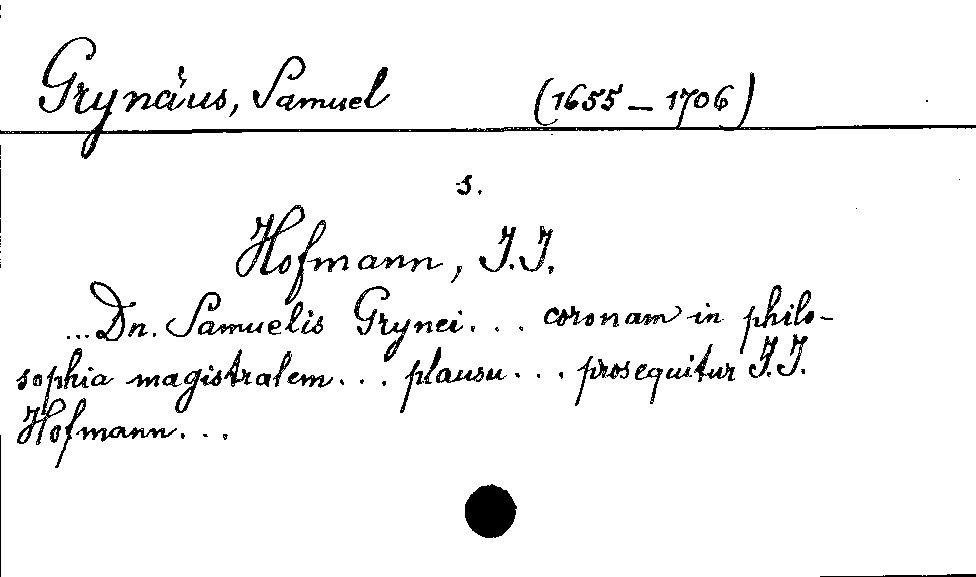 Grynäus, Samuel (1655 – 1706)
s.
Hofmann, J.J.
... Dn. Samuelis Grynei ... coronam in philo-
sophia magistralem ... plausu ... prosequitur J.J.
Hofmann ...